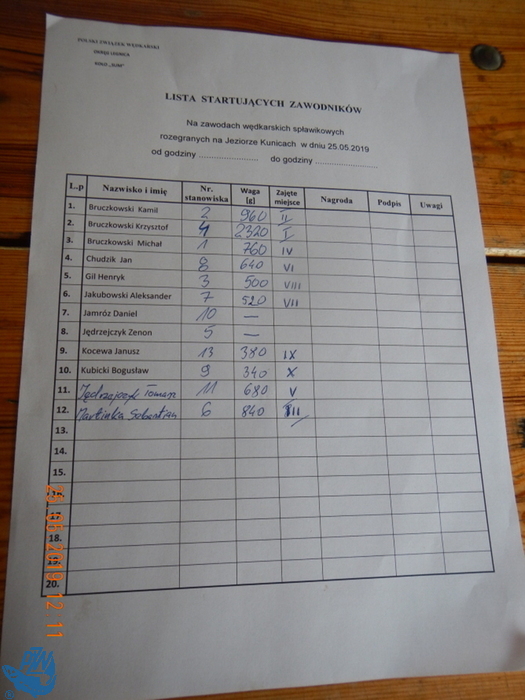 POLSKI ZWIĄZEK WĘDKARSKI
OKRĘG LEGNICA
KOŁO
LISTA STARTUJĄCYCH ZAWODNIKÓW
Na zawodach wędkarskich spławikowych
rozegranych na Jeziorze Kunicach w dniu 25.05.2019
od godziny ........................ do godziny ........................
L.p Nazwisko i imię Nr. stanowiska Waga [g] Zajęte miejsce Nagroda Podpis Uwagi
1. Bruczkowski Kamil 2 960 II
2. Bruczkowski Krzysztof 4 2320 I
3. Bruczkowski Michał 1 760 IV
4. Chudzik Jan 8 640 VI
5. Gil Henryk 3 500 VIII
6. Jakubowski Aleksander 7 520 VII
7. Jamróz Daniel 10 —
8. Jędrzejczyk Zenon 5 —
9. Kocewa Janusz 13 380 IX
10. Kubicki Bogusław 9 340 X
11. Jędrzejczyk Tomasz 11 680 V
12. Martinka Sebastian 6 840 III
13.
14.
15.
18.
20.
12 11